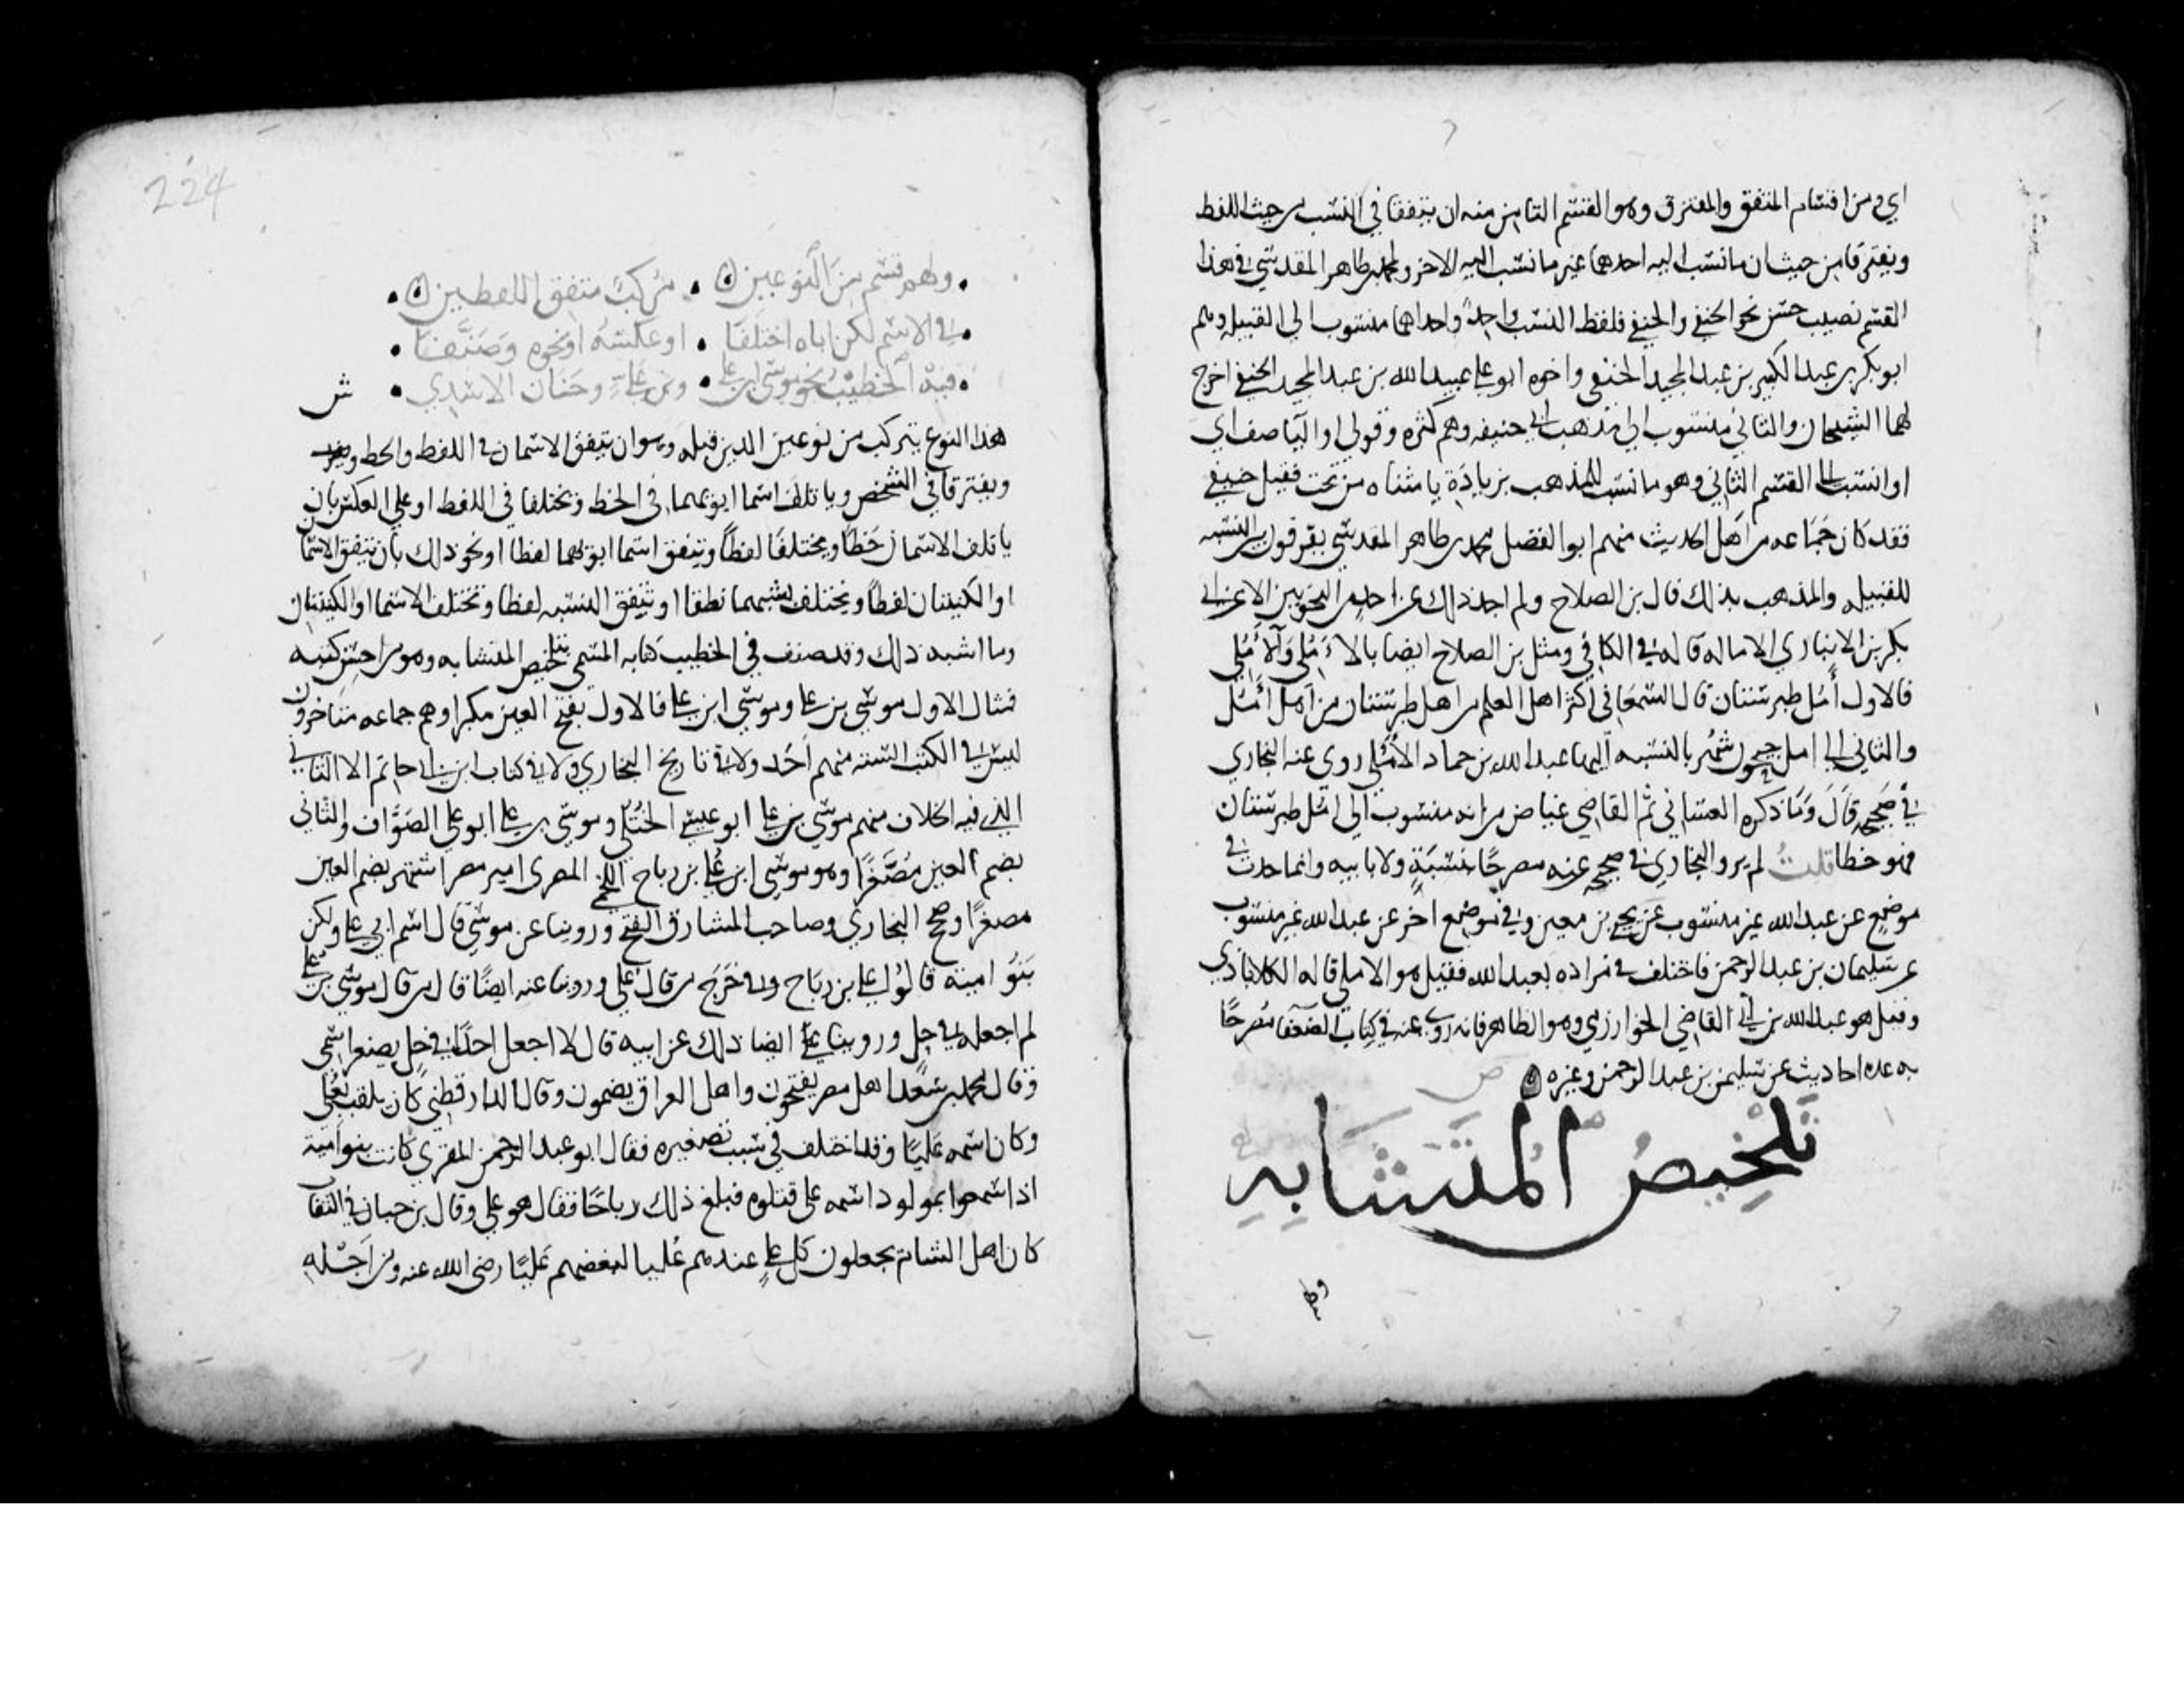 اي ومن اقسام المتفق والمفترق وهو القسم الثامن منه ان يتفقا في النسب من حيث اللفظ
ويفترقا من حيث ان ما نسب اليه احدهما غير ما نسب اليه الاخر ولمحمد بن طاهر المقدسي في هذا
القسم تصنيف حسن نحو الحنفي والحنفي فلفظ النسب واحد واحداهما منسوب الى القبيلة وهم
ابو بكر بن عبد الكبير بن عبد المجيد الحنفي واخوه ابو علي عبيد الله بن عبد المجيد الحنفي اخرج
لهما الشيخان والثاني منسوب الى مذهب ابي حنيفه وهم كثره وقولى او باليا صف اي
او انسب الى القسم الثاني وهو ما نسب للمذهب بزيادة يا مثناه من تحت فقيل حنيفي
فقد كان جماعه من اهل الحديث منهم ابو الفضل محمد بن طاهر المقدسي يفرقون بين النسبه
للقبيله والمذهب بذلك قال بن الصلاح ولم اجد ذلك عن احد من النحويين الا عن ابي
بكر بن الانباري الامام قاله في الكافي ومثل بن الصلاح ايضا بالاٰمُلي والاٰمُلي
فالاول اٰمُل طبرستان قال السمعاني اكثر اهل العلم من اهل طبرستان من اهل اٰمُل
والثاني الى امل جيحون شهر بالنسبه اليها عبد الله بن حماد الاٰمُلي روى عنه البخاري
في صحيحه قال وما ذكره الغساني ثم القاضي عياض من انه منسوب الى امل طبرستان
فهو خطا قلت لم يرو البخاري في صحيحه عنه مصرحًا بنسبةٍ ولا بابيه وانما حدث في
موضع عن عبد الله غير منسوب عن يحيى بن معين وفي موضع اخر عن عبد الله غير منسوب
عن سليمان بن عبد الرحمن فاختلف في مراده بعبد الله فقيل هو الاملي قاله الكلاباذي
وقيل هو عبد الله بن ابي القاضي الخوارزمي وهو الظاهر فانه روى عنه في كتاب الضعفا مصرحًا
به عده احاديث عن سليمن بن عبد الرحمن وغيره
ص
تَلْخِيصُ المُتَشَابِهِ
ولهم
224
ولهم قسم من النوعين • مركب متفق اللفظين •
في الاسم لكن اباه اختلفا • او عكسه او نحوه وصَنَّفا •
فيه الخطيب نحو موسى بن علي • وبن عُلَيّ وحنان الاسدي • ش
هذا النوع يتركب من نوعين الذين قبله وهو ان يتفق الاسمان في اللفظ والخط
ويفترقا في الشخص وياتلف اسما ابويهما في الخط ويختلفا في اللفظ او على العكس بان
ياتلف الاسمان خطًا ويختلفا لفظًا ويتفق اسما ابويهما لفظا او نحو ذلك بان يتفق الاسمان
او الكنيتان لفظًا ويختلف نسبهما نطقا او تتفق النسبه لفظا وتختلف الاسما او الكنيتان
وما اشبه ذلك وقد صنف في الخطيب كتابه المسمى تلخيص المتشابه وهو من احسن كتبه
فمثال الاول موسى بن علي وموسى ابن علي فالاول بفتح العين مكبرا وهم جماعه متاخرون
ليس في الكتب الستة منهم احد ولا في تاريخ البخاري ولا في كتاب ابن ابي حاتم الا الثاني
الذي فيه الخلاف منهم موسى بن علي ابو عيسى الختلي وموسى بن علي ابو علي الصواف والثاني
بضم العين مُصَغَّرًا وهو موسى ابن عُلي بن رباح اللخمي المصري امير مصر اشتهر بضم العين
مصغرًا وصحح البخاري وصاحب المشارق الفتح وروينا عن موسى قال اسم ابي علي ولكن
بَنُو امية قالوا علي بن رباح وفي حَرَج من قال عُلي وروينا عنه ايضًا قال من قال موسى بن عُلي
لم اجعله في حل وروينا عن ايضا ذلك عن ابيه قال لا اجعل احدًا في حل يصغر اسمي
وقال محمد بن سعد اهل مصر يفتحون واهل العراق يضمون وقال الدارقطني كان يلقب بعُلي
وكان اسمه عَليًا وقد اختلف في سبب تصغيره فقال ابو عبد الرحمن المقري كانت بنو امية
اذا سمعوا بمولود اسمه علي قتلوه فبلغ ذلك رباحًا فقال هو علي وقال بن حبان في الثقات
كان اهل الشام يجعلون كل عليٍ عندهم عُليا لبغضهم عَليًا رضي الله عنه ومن اَجْله